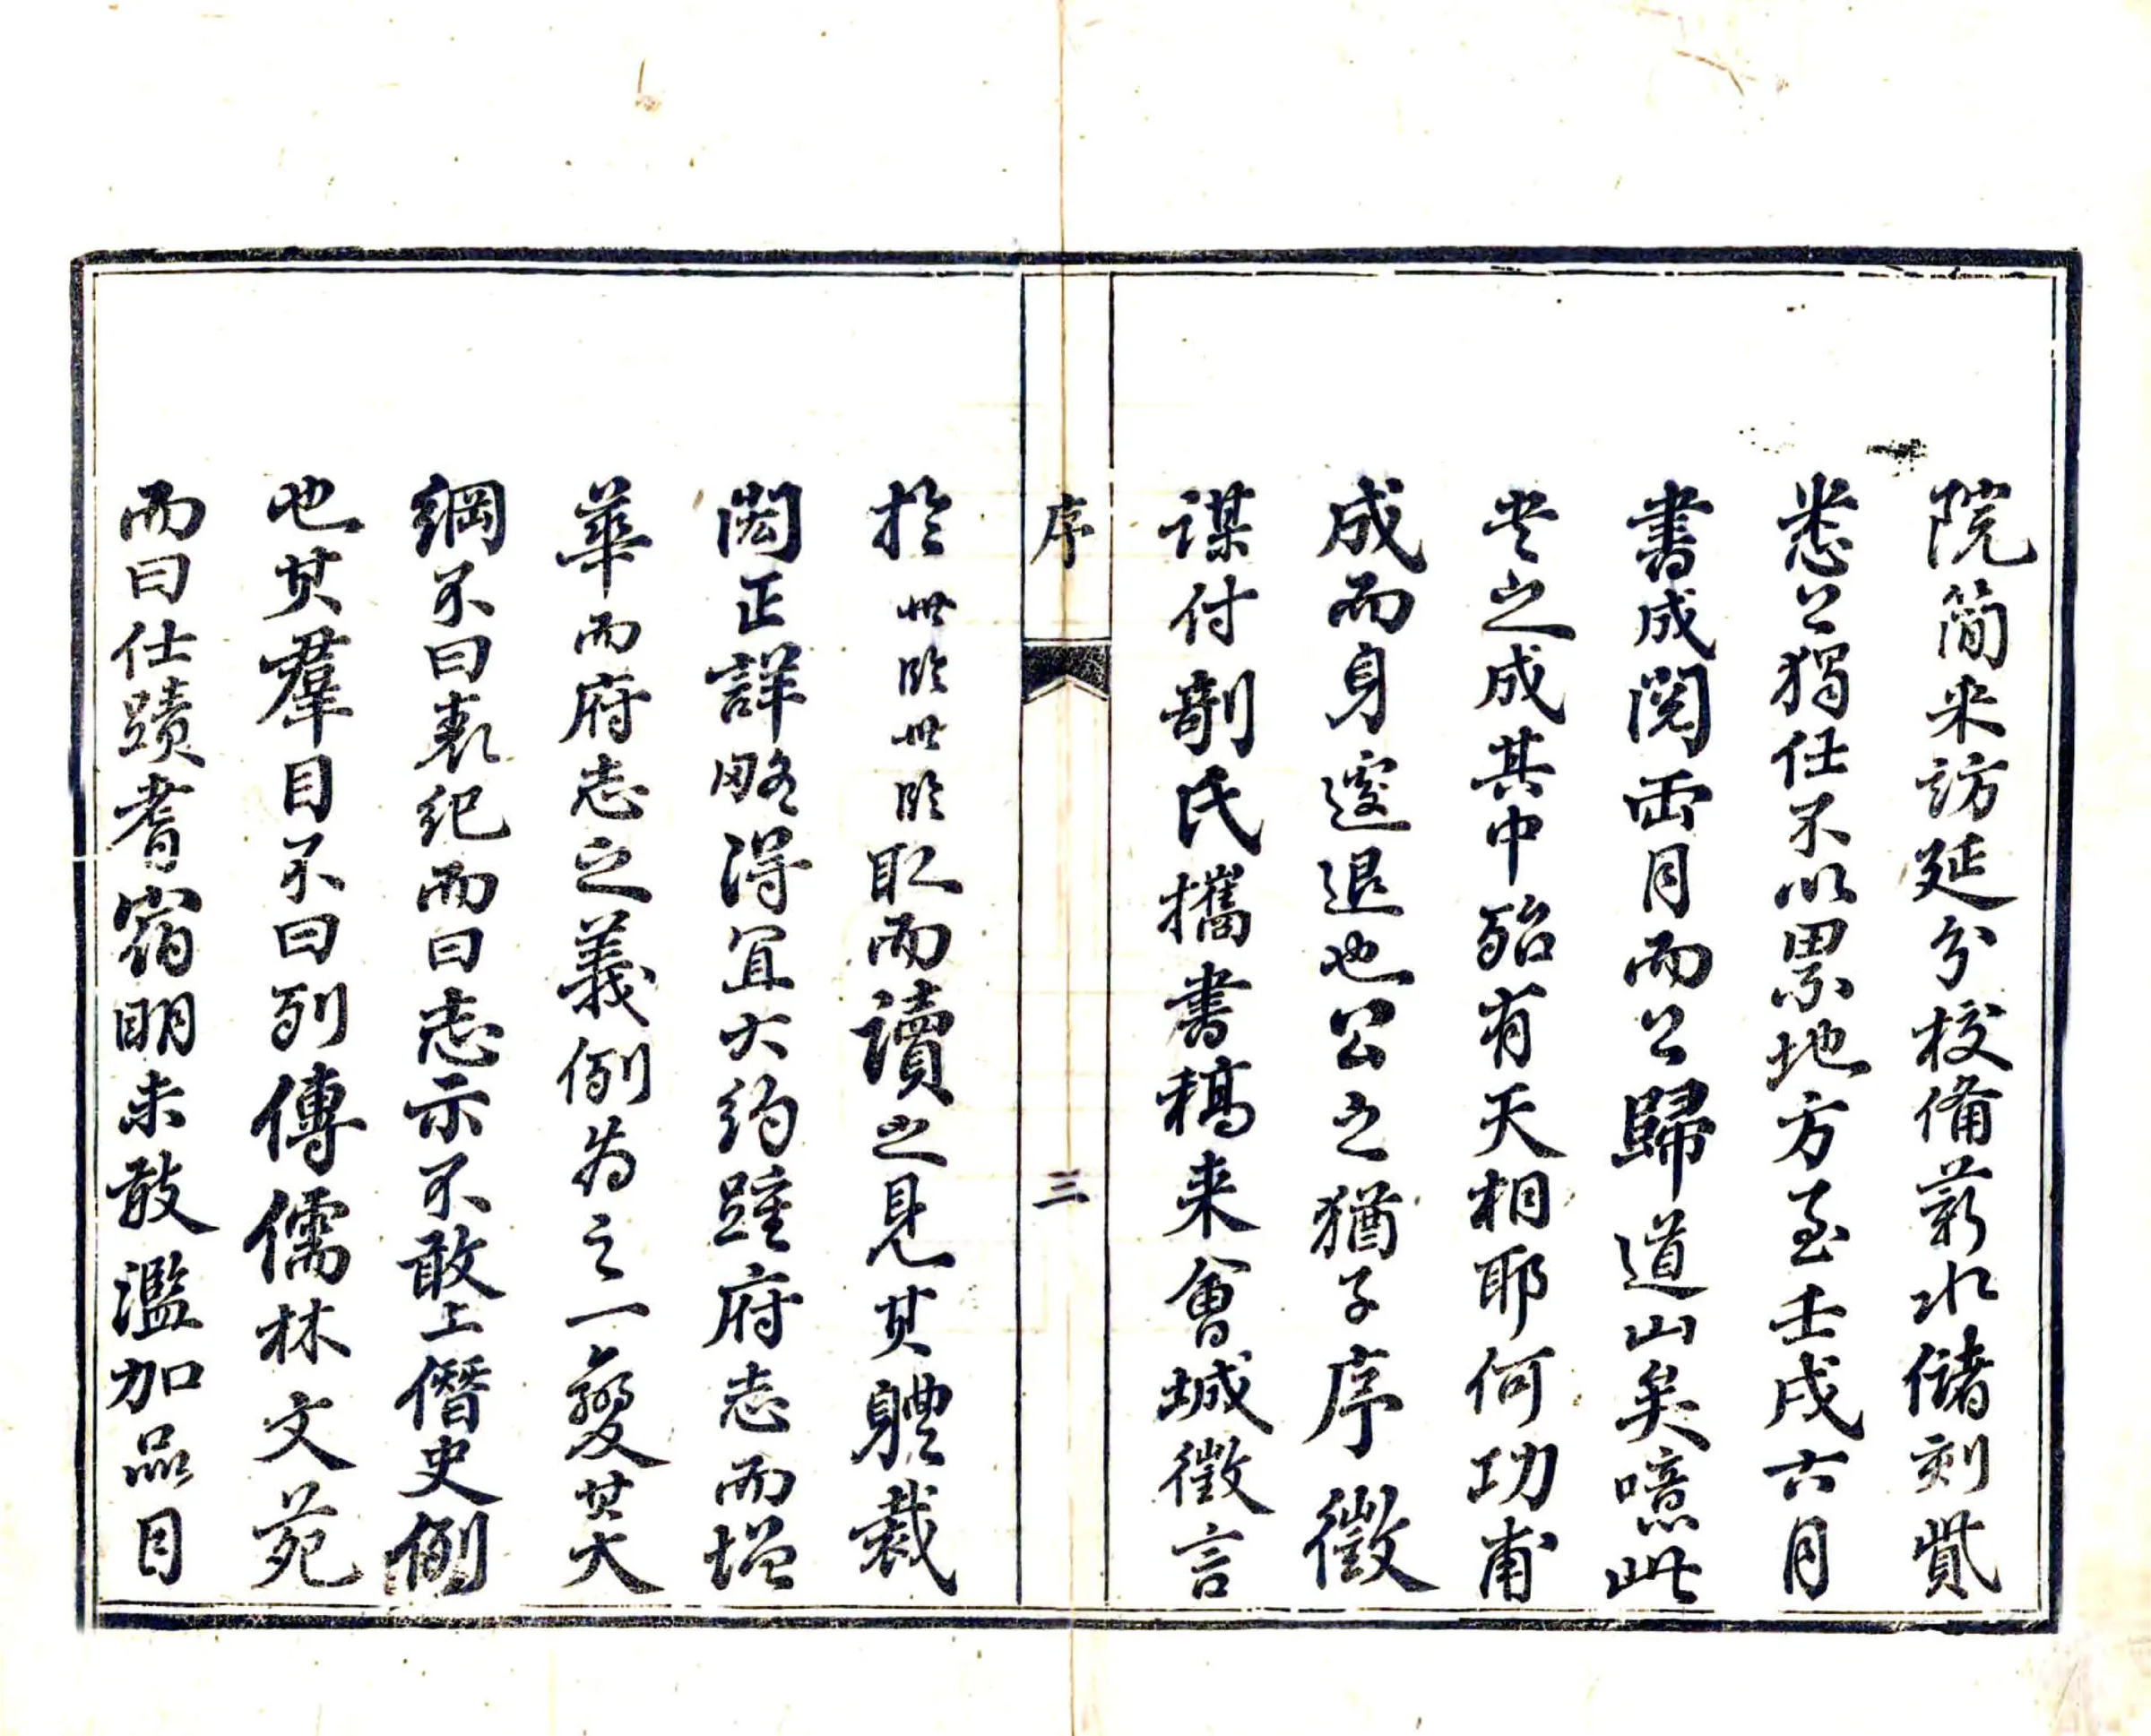 院簡来訪延分校備薪水儲刻貲
悉公獨任不以累地方至壬戌六月
書成閱兩月而公歸道山矣噫此
書之成其中殆有天相耶何功甫
成而身遽退也公之猶子序徵
謀付剞氏攜書稿来會城徵言
序
三
於取而讀之見其體裁
閎正詳略得宜大約踵府志而增
華而府志之義例為之一變其大
綱不曰表紀而曰志示不敢上僭史例
也其羣目不曰列傳儒林文苑
而曰仕蹟耆宿明未敢濫加品目